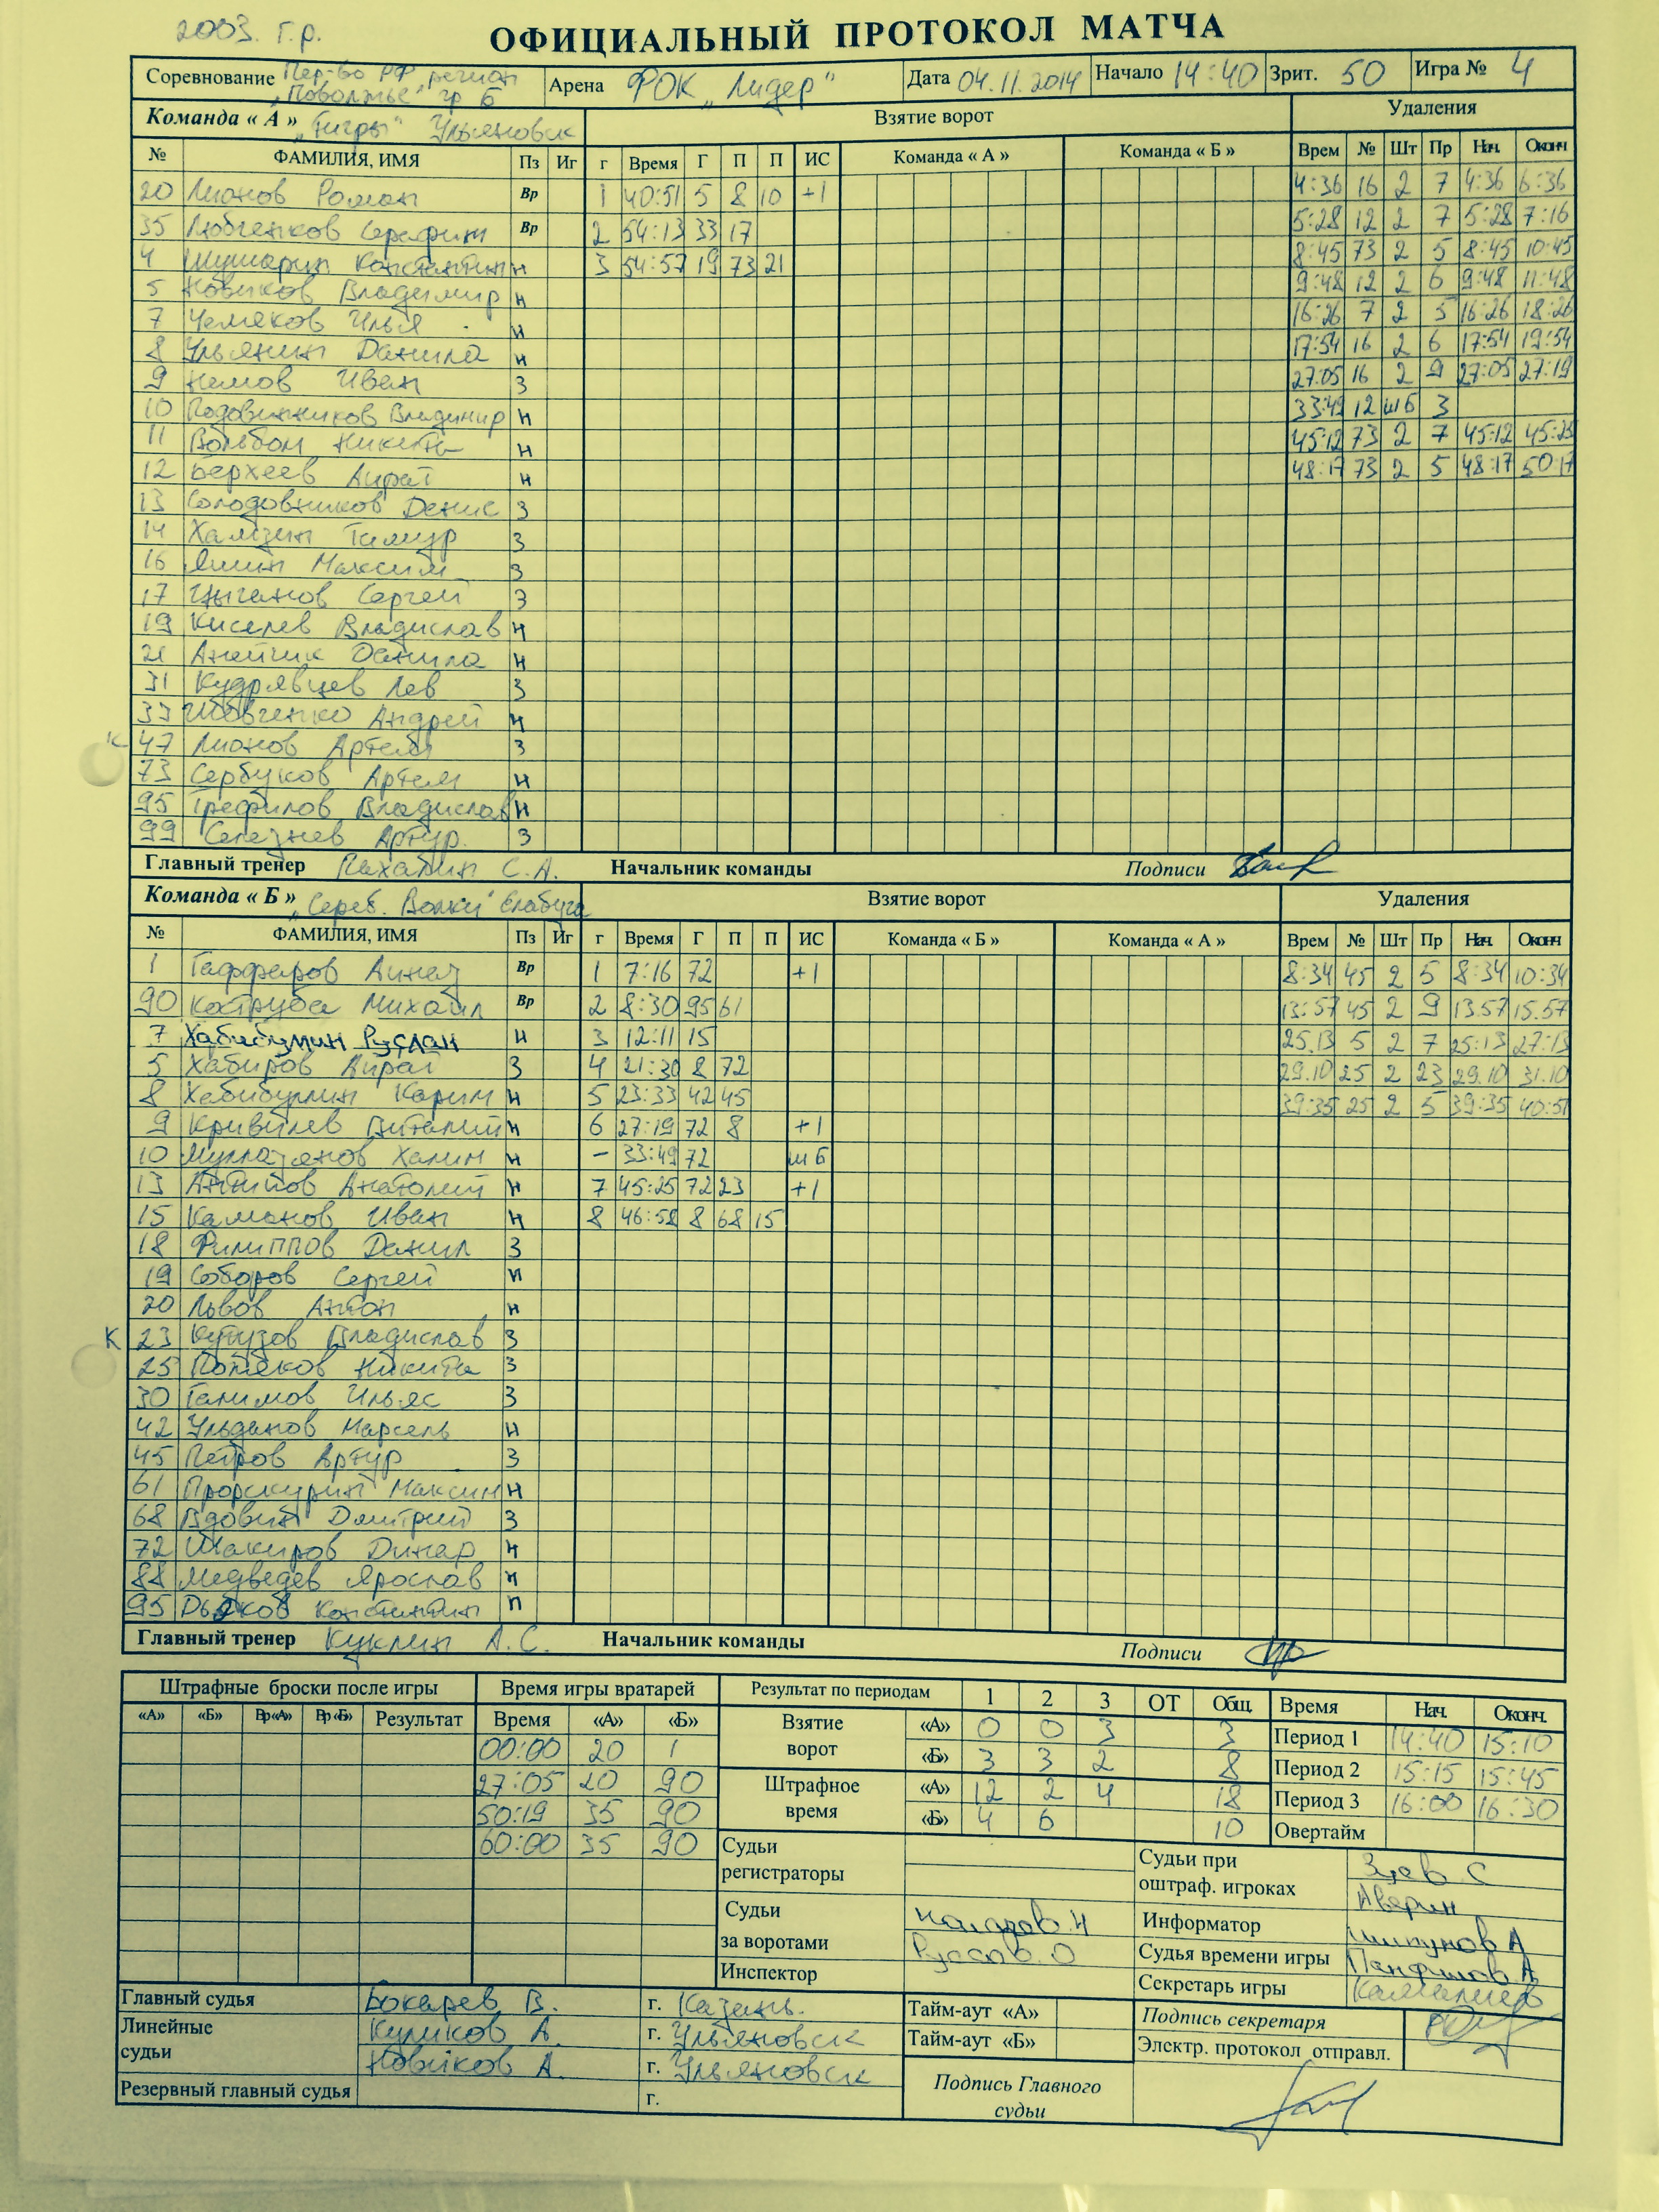 2003. г.р.
ОФИЦИАЛЬНЫЙ ПРОТОКОЛ МАТЧА
Соревнование Пер-во РФ, регион „Поволжье" гр Б Арена ФОК „Лидер" Дата 04.11.2014 Начало 14:40 Зрит. 50 Игра № 4
Команда « А » „Тигры" Ульяновск Взятие ворот Удаления
№ ФАМИЛИЯ, ИМЯ Пз Иг г Время Г П П ИС Команда « А » Команда « Б » Врем № Шт Пр Нач. Оконч
20 Лионов Роман Вр 1 40:51 5 8 10 +1 4:36 16 2 7 4:36 6:36
35 Любченков Серафим Вр 2 54:13 33 17 5:28 12 2 7 5:28 7:16
4 Шушарин Константин н 3 54:57 19 73 21 8:45 73 2 5 8:45 10:45
5 Новиков Владимир н 9:48 12 2 6 9:48 11:48
7 Чемаков Илья н 16:26 7 2 5 16:26 18:26
8 Ульянин Данила н 17:54 16 2 6 17:54 19:54
9 Немов Иван З 27:05 16 2 9 27:05 27:19
10 Подовинников Владимир н 33:49 12 шб 3
11 Никита н 45:12 73 2 7 45:12 45:25
12 Берхеев Айрат н 48:17 73 2 5 48:17 50:17
13 Солодовников Денис З
14 Хамзин Тимур З
16 Яшин Максим З
17 Цыганов Сергей З
19 Киселев Владислав н
21 Данила н
31 Кудрявцев Лев З
33 Шевченко Андрей н
К 47 Лионов Артем З
73 Сербуков Артем н
95 Трефилов Владислав н
99 Селезнев Артур. З
Главный тренер Пахалин С.А. Начальник команды Подписи
Команда « Б » „Сереб. Волки" Елабуга Взятие ворот Удаления
№ ФАМИЛИЯ, ИМЯ Пз Иг г Время Г П П ИС Команда « Б » Команда « А » Врем № Шт Пр Нач. Оконч
1 Гаффаров Вр 1 7:16 72 +1 8:34 45 2 5 8:34 10:34
90 Коструба Михаил Вр 2 8:30 95 61 13:57 45 2 9 13.57 15.57
7 Хабибулин Руслан н 3 12:11 15 25.13 5 2 7 25:13 27:13
5 Хабиров Айрат З 4 21:30 8 72 29.10 25 2 23 29.10 31.10
8 Хабибуллин Карим н 5 23:33 42 45 39:35 25 2 5 39:35 40:51
9 Кривилев Виталий н 6 27:19 72 8 +1
10 Муллазянов Халин н – 33:49 72 шб
13 Антипов Анатолий н 7 45:25 72 23 +1
15 Каманов Иван н 8 46:58 8 68 15
18 Филиппов Данил З
19 Соборов Сергей н
20 Львов Антон н
К 23 Кутузов Владислав З
25 Поляков Никита З
30 Галимов Ильяс З
42 Ульданов Марсель н
45 Петров Артур З
61 Проскурин Максим н
68 Вдовин Дмитрий З
72 Шакиров Динар н
88 Медведев Ярослав н
95 Дьяков Константин н
Главный тренер Куклин А.С. Начальник команды Подписи
Штрафные броски после игры Время игры вратарей Результат по периодам 1 2 3 ОТ Общ. Время Нач. Оконч.
«А» «Б» Вр«А» Вр«Б» Результат Время «А» «Б»
Взятие ворот «А» 0 0 3 3 Период 1 14:40 15:10
00:00 20 1 «Б» 3 3 2 8 Период 2 15:15 15:45
27:05 20 90 Штрафное время «А» 12 2 4 18 Период 3 16:00 16:30
50:19 35 90 «Б» 4 6 10 Овертайм
60:00 35 90
Судьи регистраторы Судьи при оштраф. игроках Зуев С
Аверин
Судьи за воротами Назаров Н Информатор Шипунов А
Руссов. О Судья времени игры Панфилов А
Инспектор Секретарь игры Камалиев
Главный судья Бокарев В. г. Казань. Тайм-аут «А» Подпись секретаря
Линейные судьи Куликов А г. Ульяновск Тайм-аут «Б» Электр. протокол отправл.
Новиков А. г. Ульяновск Подпись Главного судьи
Резервный главный судья г.